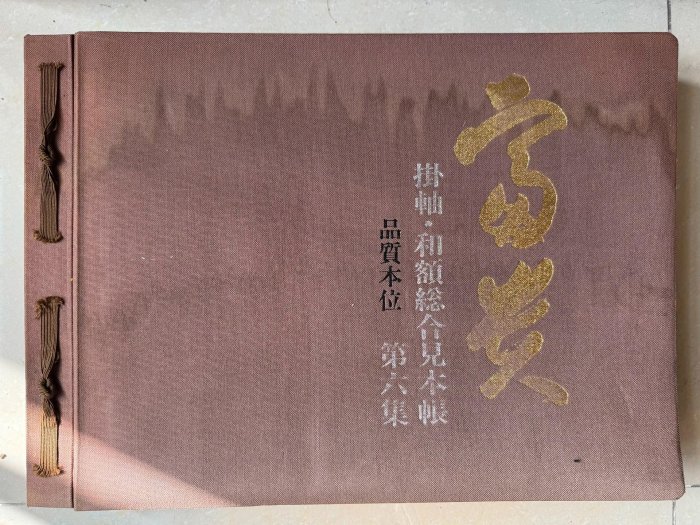 富貴
掛軸・和額総合見本帳
品質本位
第六集